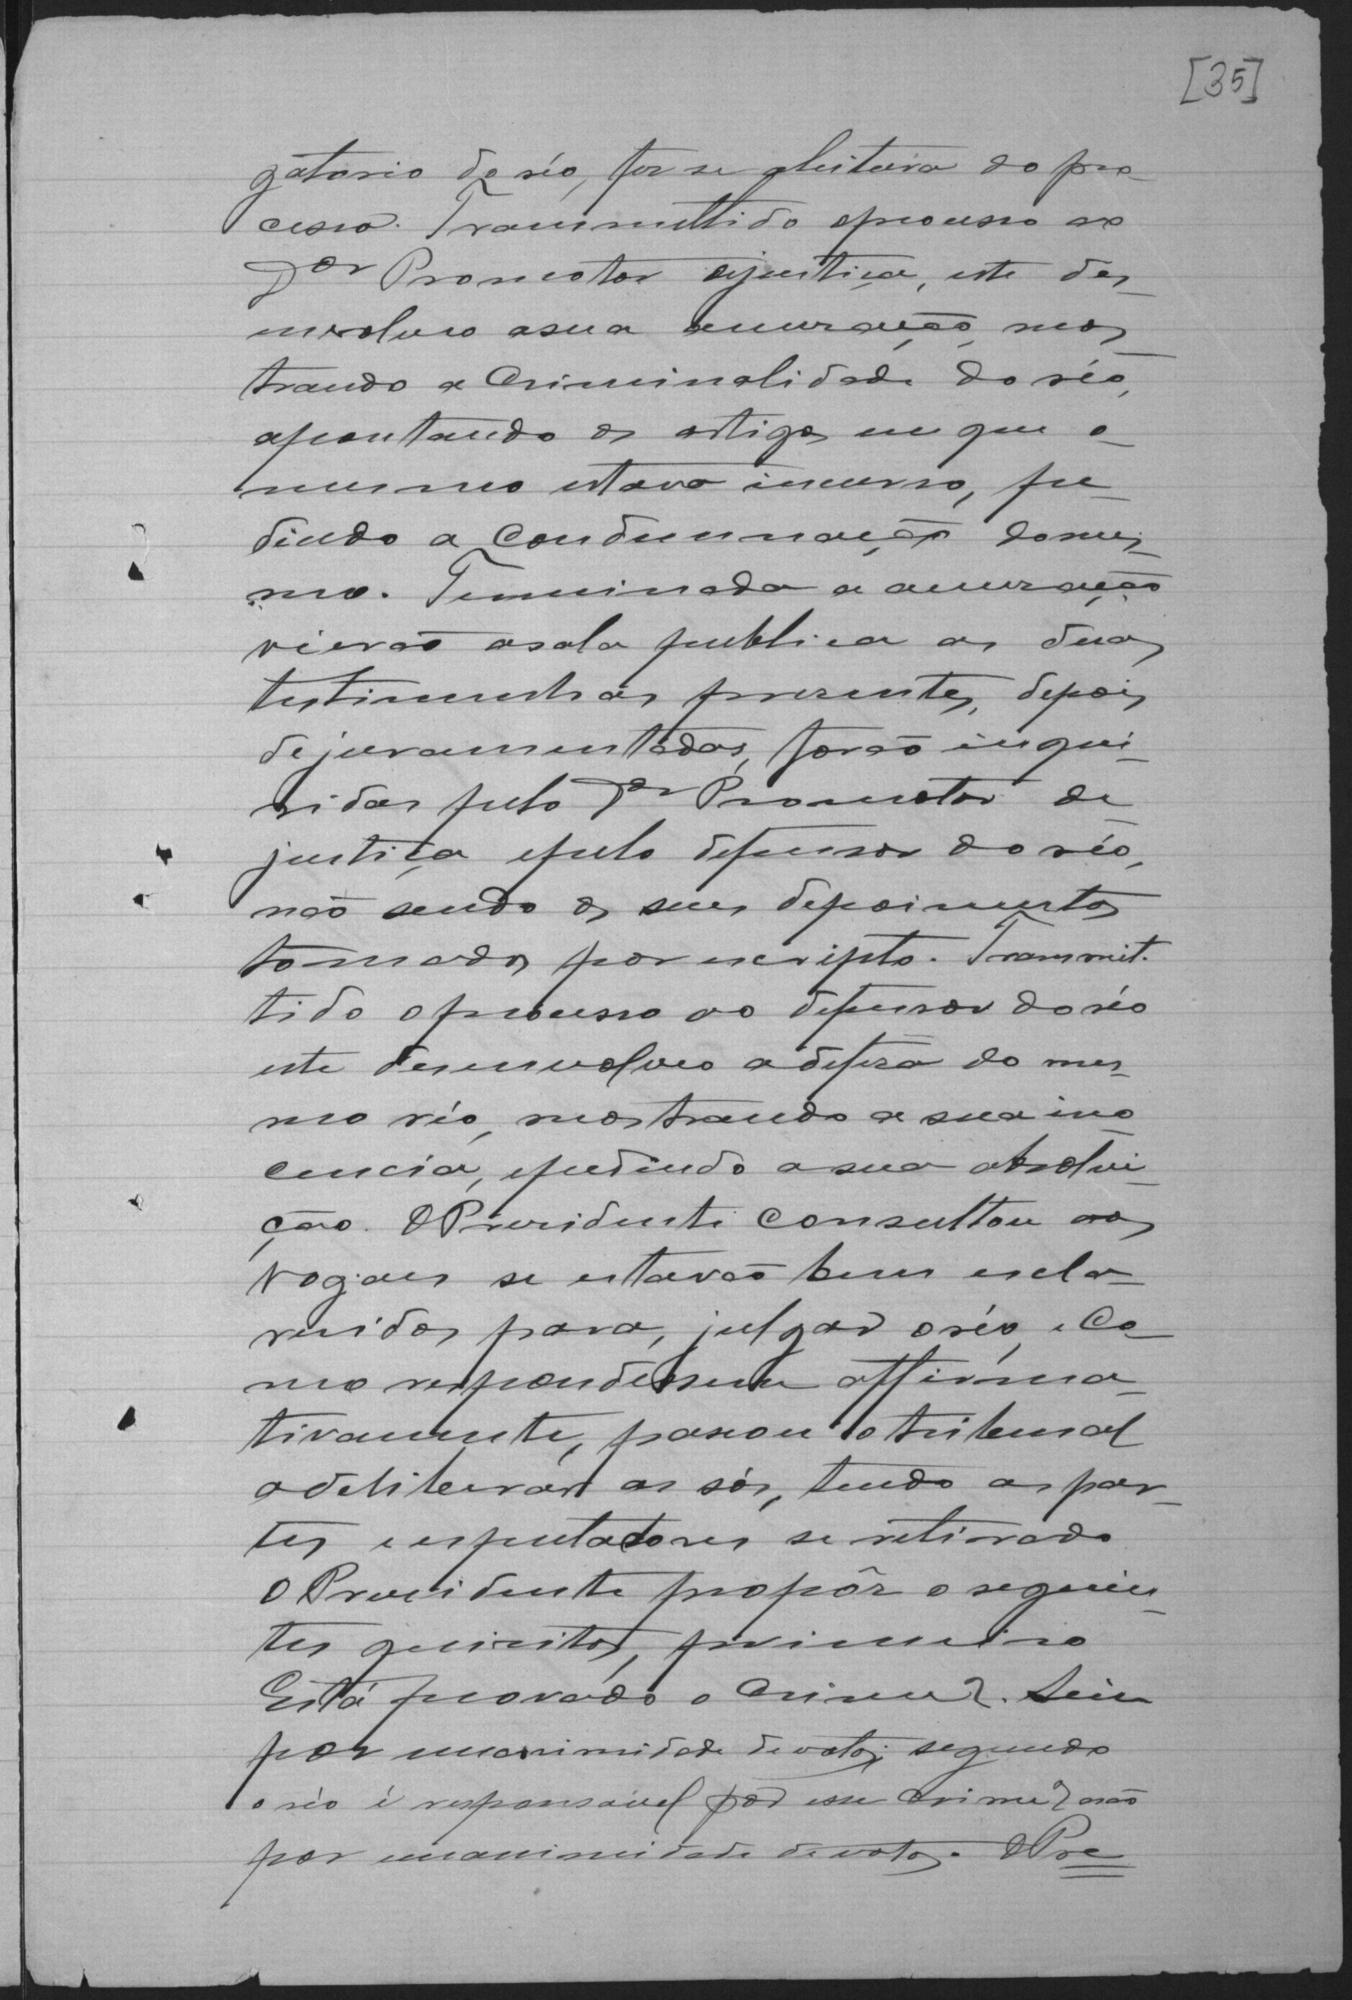 [35]
gatorio do réo, fez se aleitura do pro
cesso. Transmittido oprocesso ao
Dor Promotor dejustiça, este des
envolveo asua accusação, mos
trando a Criminalidade do réo,
apontando os artigos em que o
mesmo estava incurso, pe
dindo a Condemnação domes
mo. Terminada a accusação
vierão asala publica as duas
testimunhas prezentes, depois
dejuramentadas, forão inqui
ridas pelo Dor Promotor de
justiça epelo defensor do réo,
não sendo os seus depoimentos
tomados por escripto. Transmit.
tido oprocesso ao defensor do réo
este desenvolveo adefeza do mes
mo réo, mostrando a sua ino
cencia, epedindo asua absolvi
ção. OPrezidente Consultou aos
vogaes se estavão bem escla
recidos para, julgar oréo, e Co
mo respondessem affirma
tivamente, passou o tribunal
adeliberar as sós, tendo as par
tes e espectadores se retirado
O Prezidente propôz o seguin
tes quizitos, primeiro
Está provado o Crime?. Sim
por unanimidade devotos, segundo
o réo é responsavel por esse Crime? não
por unanimidade devotos. OPre